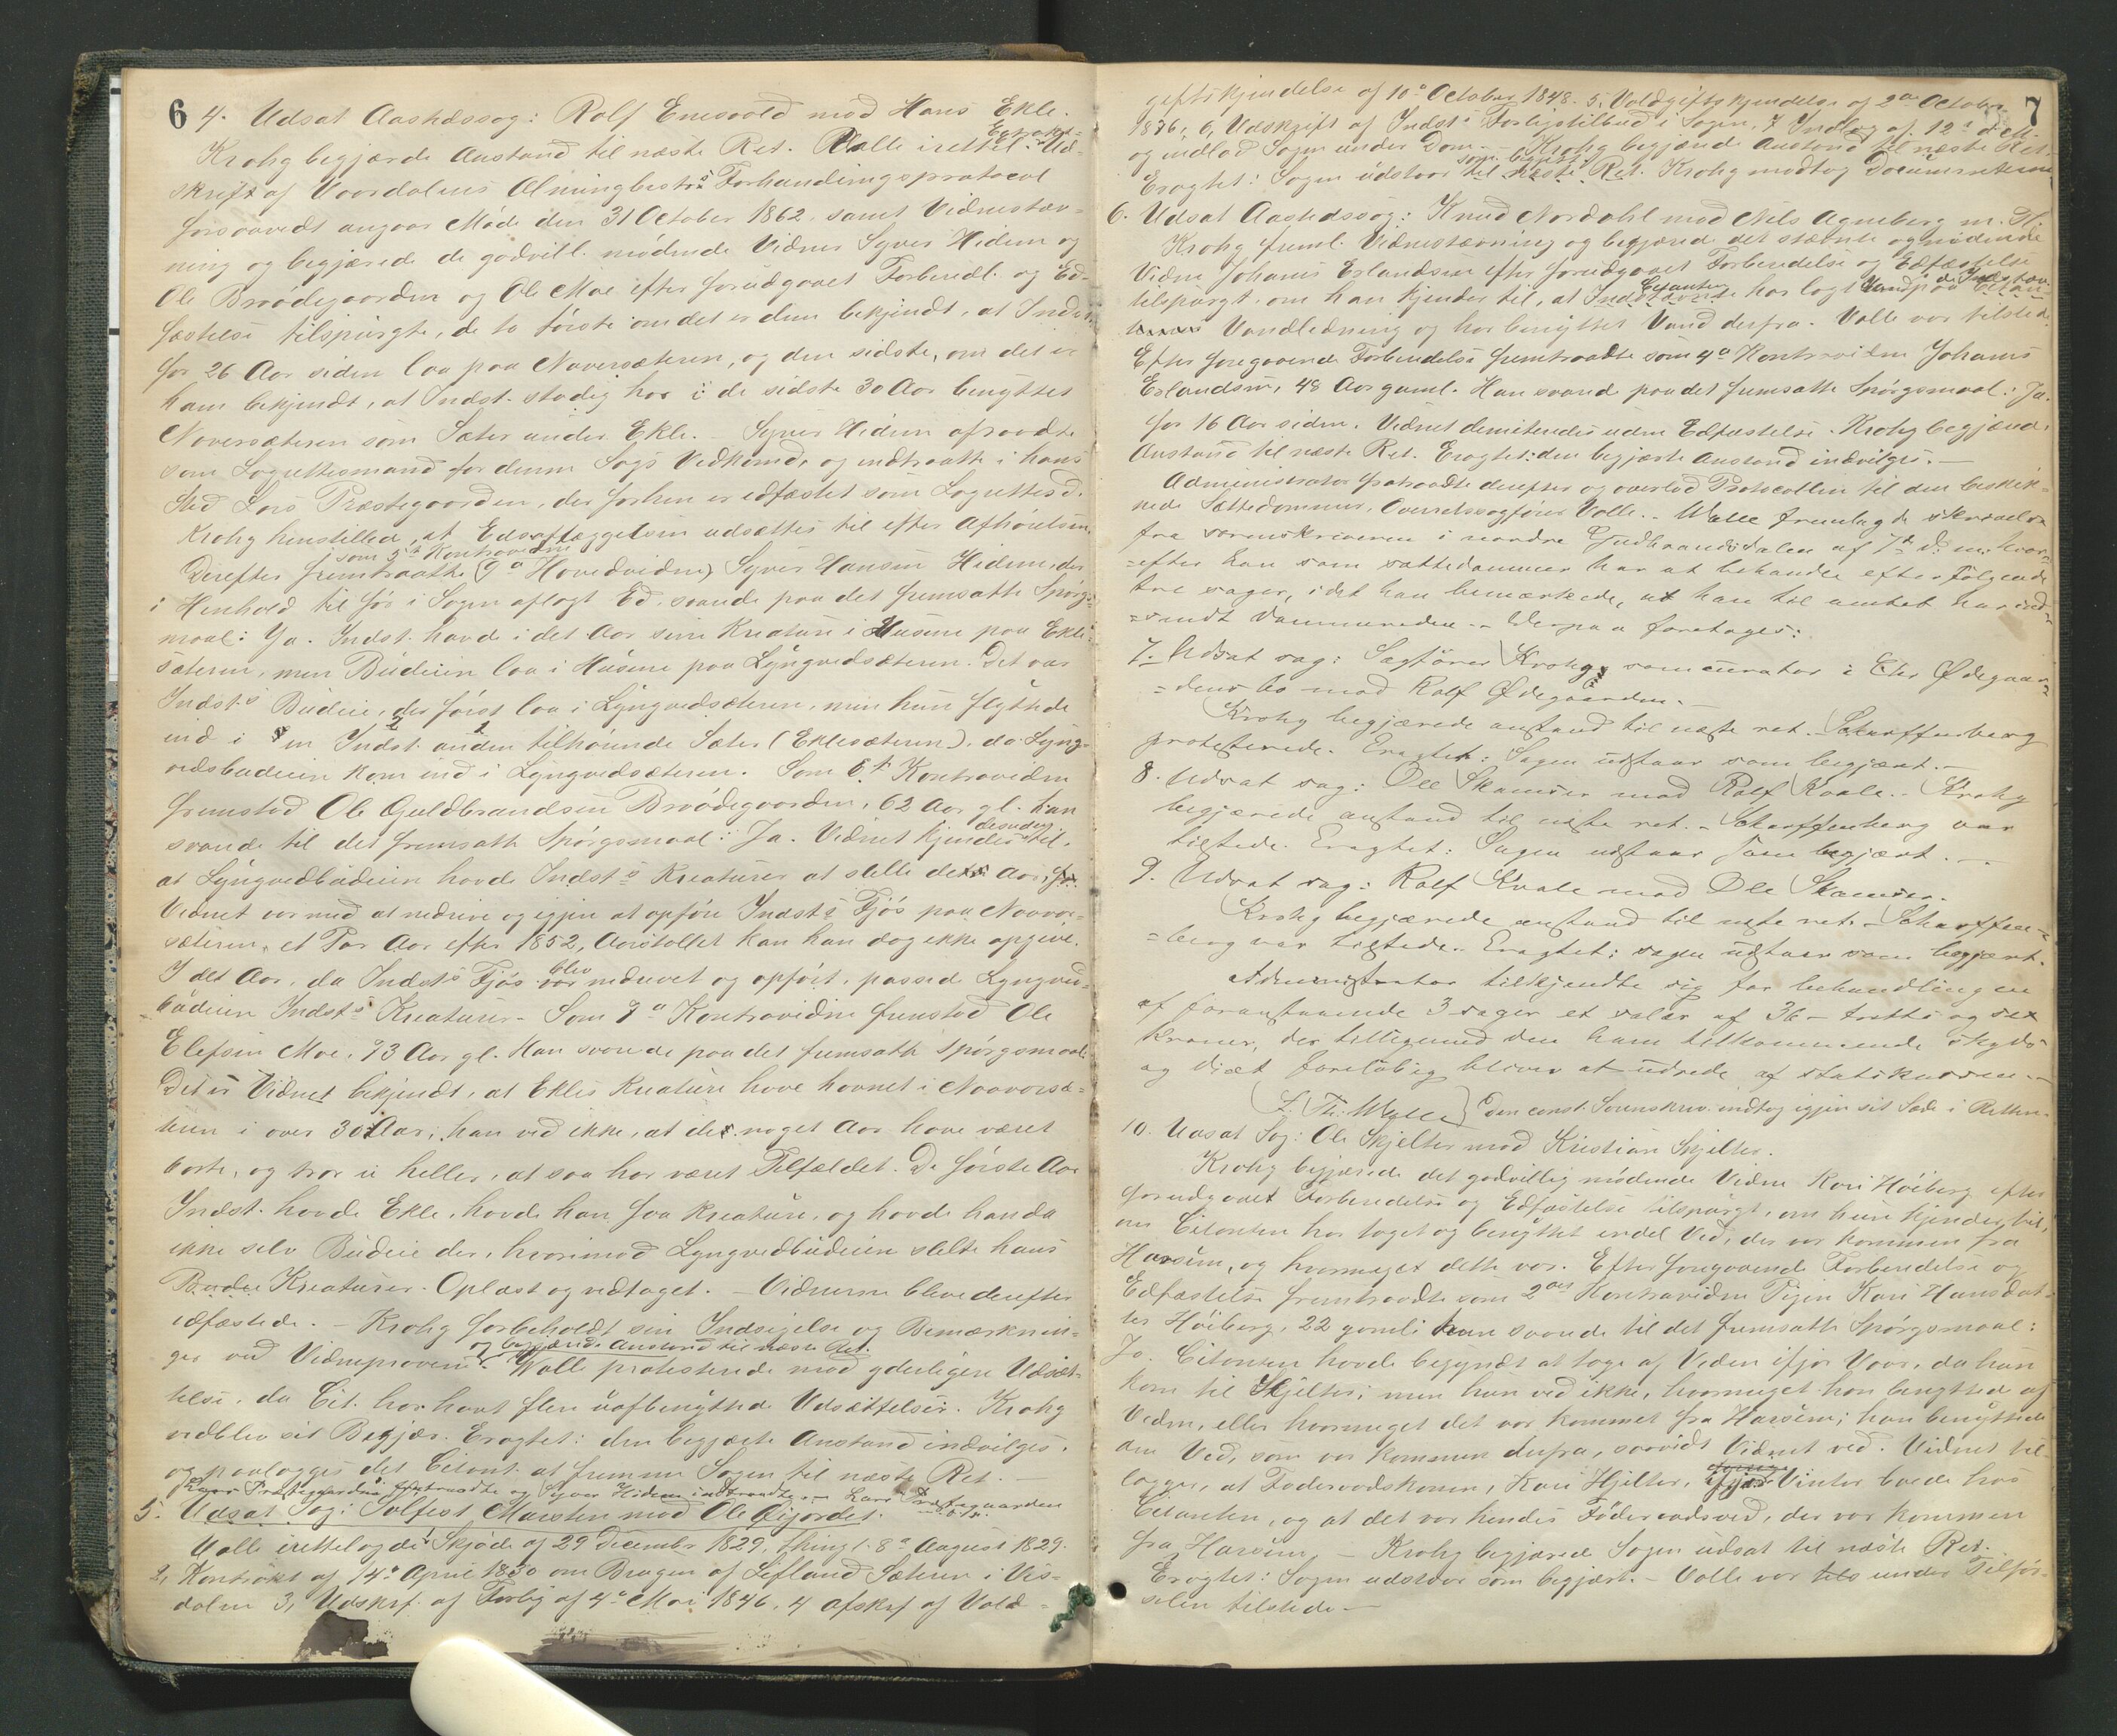 6
4. Udsat Aastedssag: Rolf Enesvold mod Hans Ekle.
Krohg begjærde Anstand til næste Ret. Valle irettel. Extrakt-Ud-
skrift af Vaardalens Almingbestrs Forhandlingsprotocol
forsaavidt angaar Møde den 31 October 1862, samt Vidnestæv-
ning og begjærede de godvill. mødende Vidner Syver Hidem og
Ole Brødegaarden og Ole Moe efter forudgaaet Forberedl. og Ed-
fæstelse tilspurgte, de to første om det er dem bekjendt, at Indst.
for 26 Aar siden laa paa Naversæteren, og den sidste, om det er
ham bekjendt, at Indst. stadig har i de sidste 30 Aar benyttet
Naversæteren som Sæter under Ekle. - Syver Hidem afraadte
som Lagrettesmand for denne Sags Vedkomd. og indtraatte i hans
Sted Lars Præstegaarden, der forhen er edfæstet som Lagrettesd.
Krohg henstilled, at Edsaflæggelsen udsættes til efter Afhørelsen.
som 5te Kontravidne
Derefter fremtraadte (9de Hovedvidne) Syver Hansen Hidem, der
i Henhold til før i Sagen aflagt Ed. svarede paa det fremsatte Spørgs-
maal: Ja. Indst. havde i det Aar sine Kreature i Husene paa Ekle-
sæteren, men Budeien laa i Husene paa Lyngvedsæteren. Det var
Indsts Budeie, der først laa i Lyngvedsæteren, men hun flyttede
ind i en Indst. anden tilhørende Sæter (Eklesæteren), da Lyng-
vedsbudeien kom ind i Lyngvedsæteren. Som 6te Kontravidne
fremstod Ole Guldbrandsen Brødegaarden, 62 Aar gl. han
svarede til det fremsatte Spørgsmaal: Ja. Vidnet kjender desuden til,
at Lyngvedbudeien havde Indsts Kreaturer at stelle dette Aar,
Vidnet var med at nedrive og igjen at opføre Indsts Fjøs paa Naavor-
sæteren, et Par Aar efter 1852, Aarstallet kan han dog ikke opgive.
I det Aar, da Indsts Fjøs blev nedrevet og opført, passede Lyngved-
budeien Indsts Kreaturer - Som 7de Kontravidne fremstod Ole
Elefsen Moe, 73 Aar gl. Han svarede paa det fremsatte Spørgsmaal:
Det er Vidnet bekjendt, at Ekles Kreature have havnet i Naavorsæ-
teren i over 30 Aar; han ved ikke, at de noget Aar have været
borte, og tror ei heller, at saa har været Tilfældet. De første Aar
Indst. havde Ekle, havde han faa Kreature, og havde han da
ikke selv Budeie der, hvorimod Lyngvedbudeien stelte hans
Budeie Kreaturer. Oplæst og vedtaget. - Vidnerne bleve derefter
edfæstede. - Krohg forbeholdt sin Indsigelse og Bemærknin-
og begjærede Anstand til næste Ret.
ger ved Vidneprøven. Valle protesterede mod yderligere Udsæt-
telse, da Cit. har havt flere uafbenyttede Udsættelser. Krohg
vedblev sit Begjær. Eragtet: den begjærte Anstand indvilges,
og paalægges det Citant. at fremme Sagen til næste Ret. -
Lars Præstegaarden fratraadte og Syver Hidem indtraadte. - Lars Præstegaarden
5. Udsat Sag: Solfest Marsten mod Ole Lijordet.
Valle irettelagde Skjøde af 29 December 1829, thingl. 8de August 1829.
2, Kontrakt af 14de April 1830 om Brugen af Lifland Sæteren i Vis-
dalen 3, Udskrf. af Forlig af 4de Mai 1846, 4 Afskrf af Vold-
7
giftskjendelse af 10de October 1848. 5, Voldgiftskjendelse af 2den October
1876, 6, Udskrift af Indsts Forligstilbud i Sagen, 7 Indlæg af 12te d. M.
og indlod Sagen under Dom. - Krohg begjærede Anstand til næste Ret.
som begjært
Eragtet: Sagen udstaar til næste Ret. Krohg modtog Documenterne
6. Udsat Aastedssag: Knud Nordahl mod Nils Agneberg m. Fl.
Krohg freml. Vidnestævning og begjærede det stævnte og mødende
Vidne Johanes Erlandsen efter forudgaaet Forberedelse og Edfæstelse
tilspurgt, om han kjender til, at Citanten har lagt Vand paa de Indstævn-
tes Vandledning og har benyttet Vand derfra. Valle var tilstede.
Efter foregaaende Forberedelse fremtraadte som 4de Kontravidne Johanes
Erlandsen, 48 Aar gaml. Han svarede paa det fremsatte Spørgsmaal: Ja.
for 16 Aar siden. Vidnet demitteredes uden Edfæstelse. Krohg begjærede
Anstand til næste Ret. Eragtet: den begjærte Anstand indvilges. -
Administrator fratraadte derefter og overlod Protocollen til den beskik-
kede Sættedommer, Overretssagfører Valle. - Walle fremlagde skrivelse
fra sorenskriveren i nordre Gudbrandsdalen af 7de d. m. hvor-
=efter han som sættedommer har at behandle efterfølgende
tre sager, idet han bemærkede, at han til amtet har ind-
=sendt Dommereden. - Derpaa foretages:
7. Udsat sag: Sagfører Krohg som curator i Elis Ødegaar-
=dens bo mod Rolf Ødegaarden. -
Krohg begjærede anstand til næste ret. - Scharffenberg
protesterede. Eragtet: Sagen udstaar som begjært. -
8. Udsat sag: Ole Skamsar mod Rolf Kvale. - Krohg
begjærede anstand til næste ret. - Scharffenberg var
tilstede. Eragtet: Sagen udstaar som begjært. -
9. Udsat sag: Rolf Kvale mod Ole Skamsar.
Krohg begjærede anstand til næste ret. - Scharffen-
=berg var tilstede. - Eragtet: sagen udstaar som begjært.
Administrator tilkjendte sig for behandlingen
af foranstaaende 3 sager et salær af 36 - tretti og sex
kroner, der tilligemed den ham tilkommende skyds
og diæt foreløbig bliver at udrede af statskassen. -
(F. Th. Walle) Den const. Sorenskriv. indtog igjen sit Sæde i Retten.
10. Udsat Sag: Ole Skjelter mod Kristian Skjelter.
Krohg begjærede det godvillig mødende Vidne Kari Høiberg efter
forudgaaet Forberedelse og Edfæstelse tilspurgt, om hun kjender til,
om Citanten har taget og benyttet endel Ved, der var kommen fra
Harsem, og hvormeget dette var. Efter foregaaende Forberedelse og
Edfæstelse fremtraadte som 2det Kontravidne Pigen Kari Hansdat-
ter Høiberg, 22 gaml. hun svarede til det fremsatte Spørgsmaal:
Ja. Citanten havde begyndt at tage af Veden ifjor Vaar, da hun
kom til Skjelter; men hun ved ikke, hvormeget han benyttede af
Veden, eller hvormeget det var kommet fra Harsem; han benyttede
den Ved, som var kommen derfra, saavidt Vidnet ved. Vidnet til-
lægger, at Føderaadskonen, Kari Hjelter, ifjor Vinter boede hos
Citanten, og at det var hendes Føderaadsved, der var kommen
fra Harsem. - Krohg begjærede Sagen udsat til næste Ret.
Eragtet: Sagen udstaar som begjært. - Valle var under Tilfør-
selen tilstede -